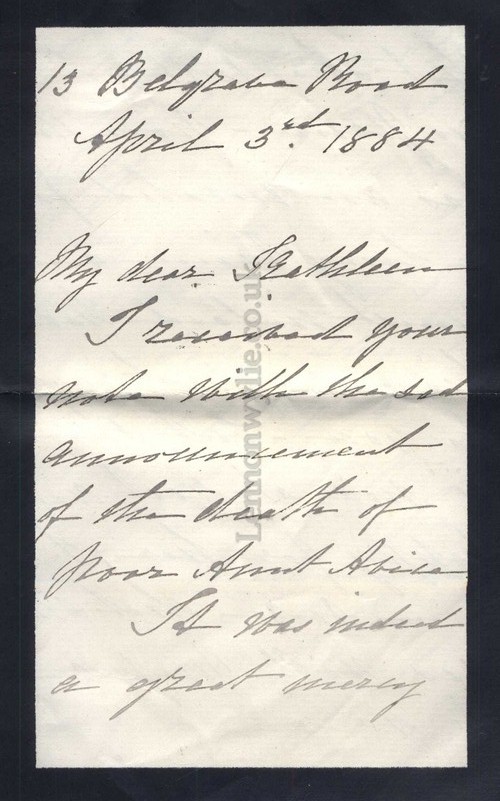 13 Belgrave Road
April 3rd. 1884
My dear Kathleen
I received your
note with the sad
announcement
of the death of
poor Aunt Avice
It was indeed
a great mercy
Lennonwylie.co.uk